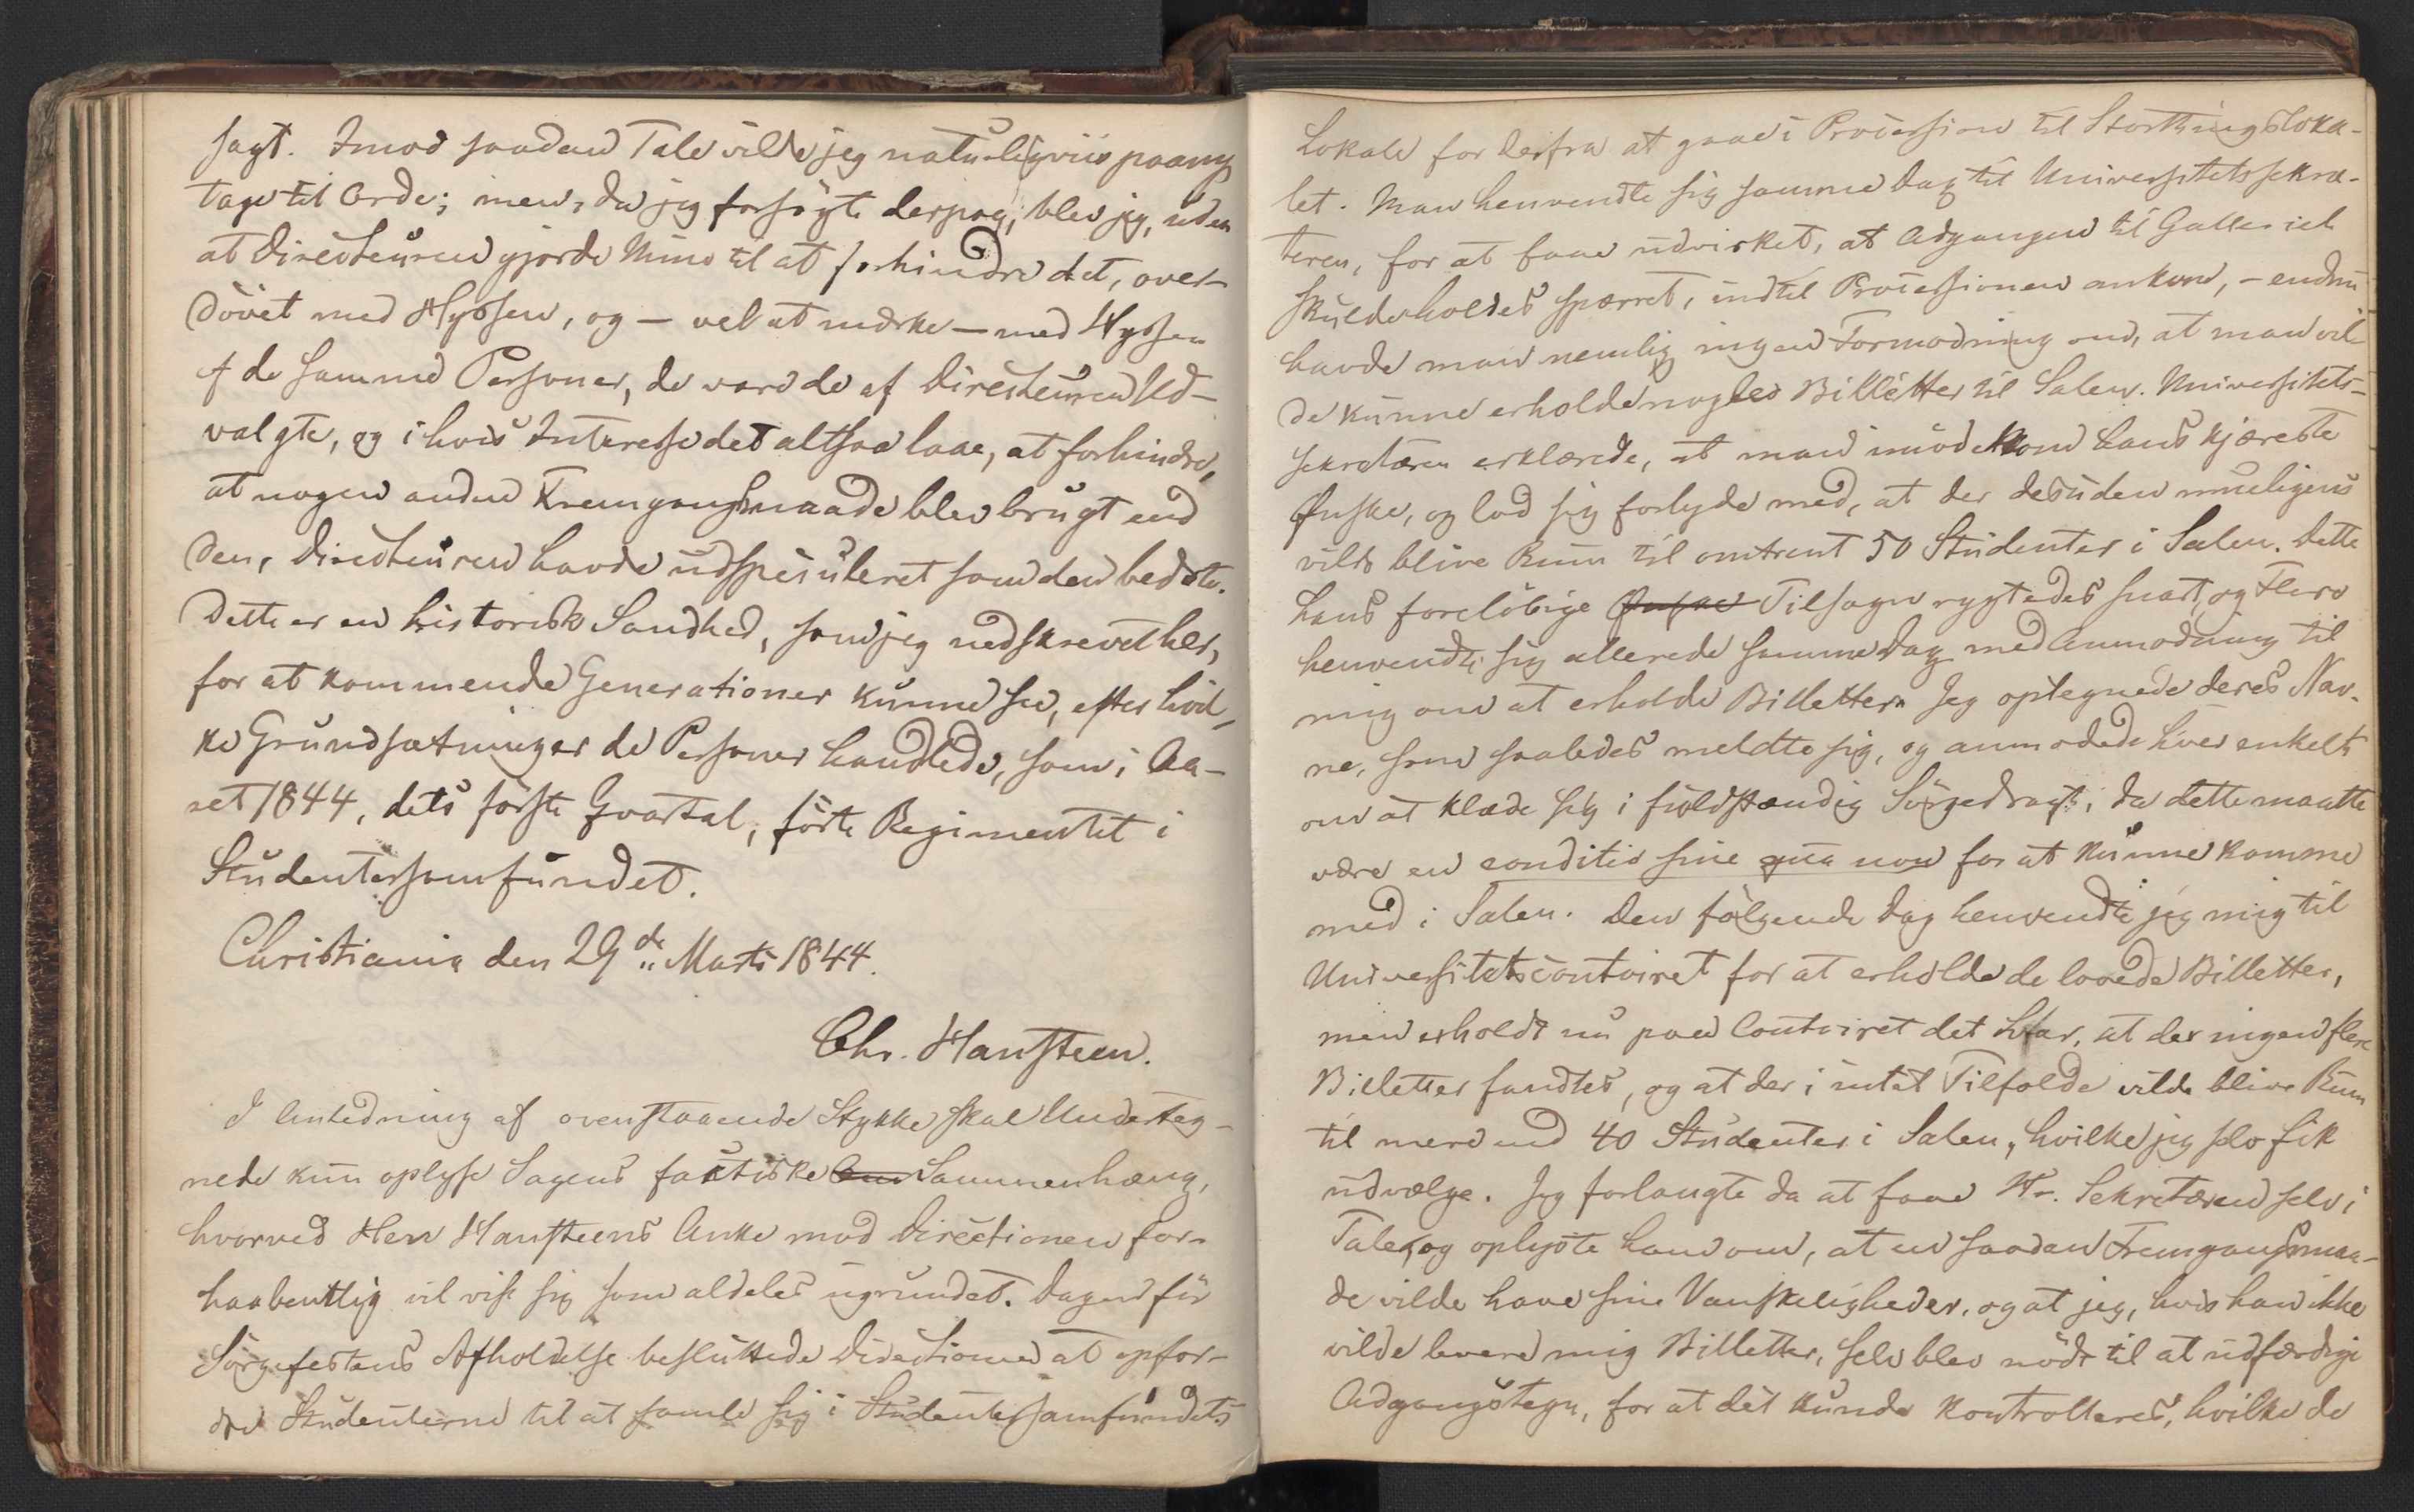 sagt. Imod saadan Tale vilde jeg naturligviis paany
tage til Orde; men, da jeg forsøgte derpaa, blev jeg, uden
at Directeuren gjorde Mine til at forhindre det, over-
døvet med Hyssen, og – vel at mærke – med Hyssen
af de samme Personer, de vare de af Directeuren Ud-
valgte, og i hvis Interesse det altsaa laae, at forhindre,
at nogen anden Fremgangsmaade blev brugt end
den, Directeuren havde udspeculeret som den bedste.
Dette er en historisk Sandhed, som jeg nedskrevet her,
for at kommende Generationer kunne see, efter hvil-
ke Grundsætninger de Personer handlede, som i Aa-
ret 1844, dets første Qvartal,førte Regimentet i
Studentersamfundet.
Christiania den 29de Marts 1844.
Chr. Hansteen.
I Anledning af ovenstaaende Stykke skal Underteg-
nede kun oplyse Sagens factiske Sammenhæng,
hvorved Herr Hansteens Anke mod Directionen for-
haabentlig vil vise sig som aldeles ugrundet. Dagen før
Sørgefestens Afholdelse besluttede Directionen at opfor-
dre Studenterne til at samle sig i Studentersamfundets
Lokale for derfra at gaae i Procession til Storthingsloka-
let. Man henvendte sig samme Dag til Universitetssekre-
teren, for at faae udvirket, at Adgangen til Galleriet
skulde holdes spærret, indtil Processionen ankom, – endnu
havde man nemlig ingen Formodning om, at man vil-
de kunne erholde nogle Billetter til Salen. Universitets-
sekretæren erklærede, at man imødekom hans kjæreste
Ønske, og lod sig forlyde med, at der desuden mueligens
vilde blive Rum til omtrent 50 Studenter i Salen. Dette
hans foreløbige Ønske Tilsagn rygtedes snart, og Flere
henvendte sig allerede samme Dag med Anmodning til
mig om at erholde Billetter. Jeg optegnede deres Nav-
ne, som saaledes meldte sig, og anmodede hver enkelt
om at klæde sig i fuldstændig Sørgedragt, da dette maatte
være en conditio sine qua non for at kunne komme
med i Salen. Den følgende Dag henvendte jeg mig til
Universitetscontoiret for at erholde de lovede Billetter,
men erholdt nu paa Contoiret det Svar, at der ingen flere
Billetter fandtes, og at der i intet Tilfælde vilde blive Rum
til mere end 40 Studenter i Salen, hvilke jeg selv fik
udvælge. Jeg forlangte da at faae Hr. Sekretæren selv i
Tale, og oplyste ham om, at en saadan Fremgangsmaa-
de vilde have sine Vanskeligheder, og at jeg, hvis han ikke
vilde levere mig Billetter, selv blev nødt til at udfærdige
Adgangstegn, for at det kunde kontrolleres, hvilke de